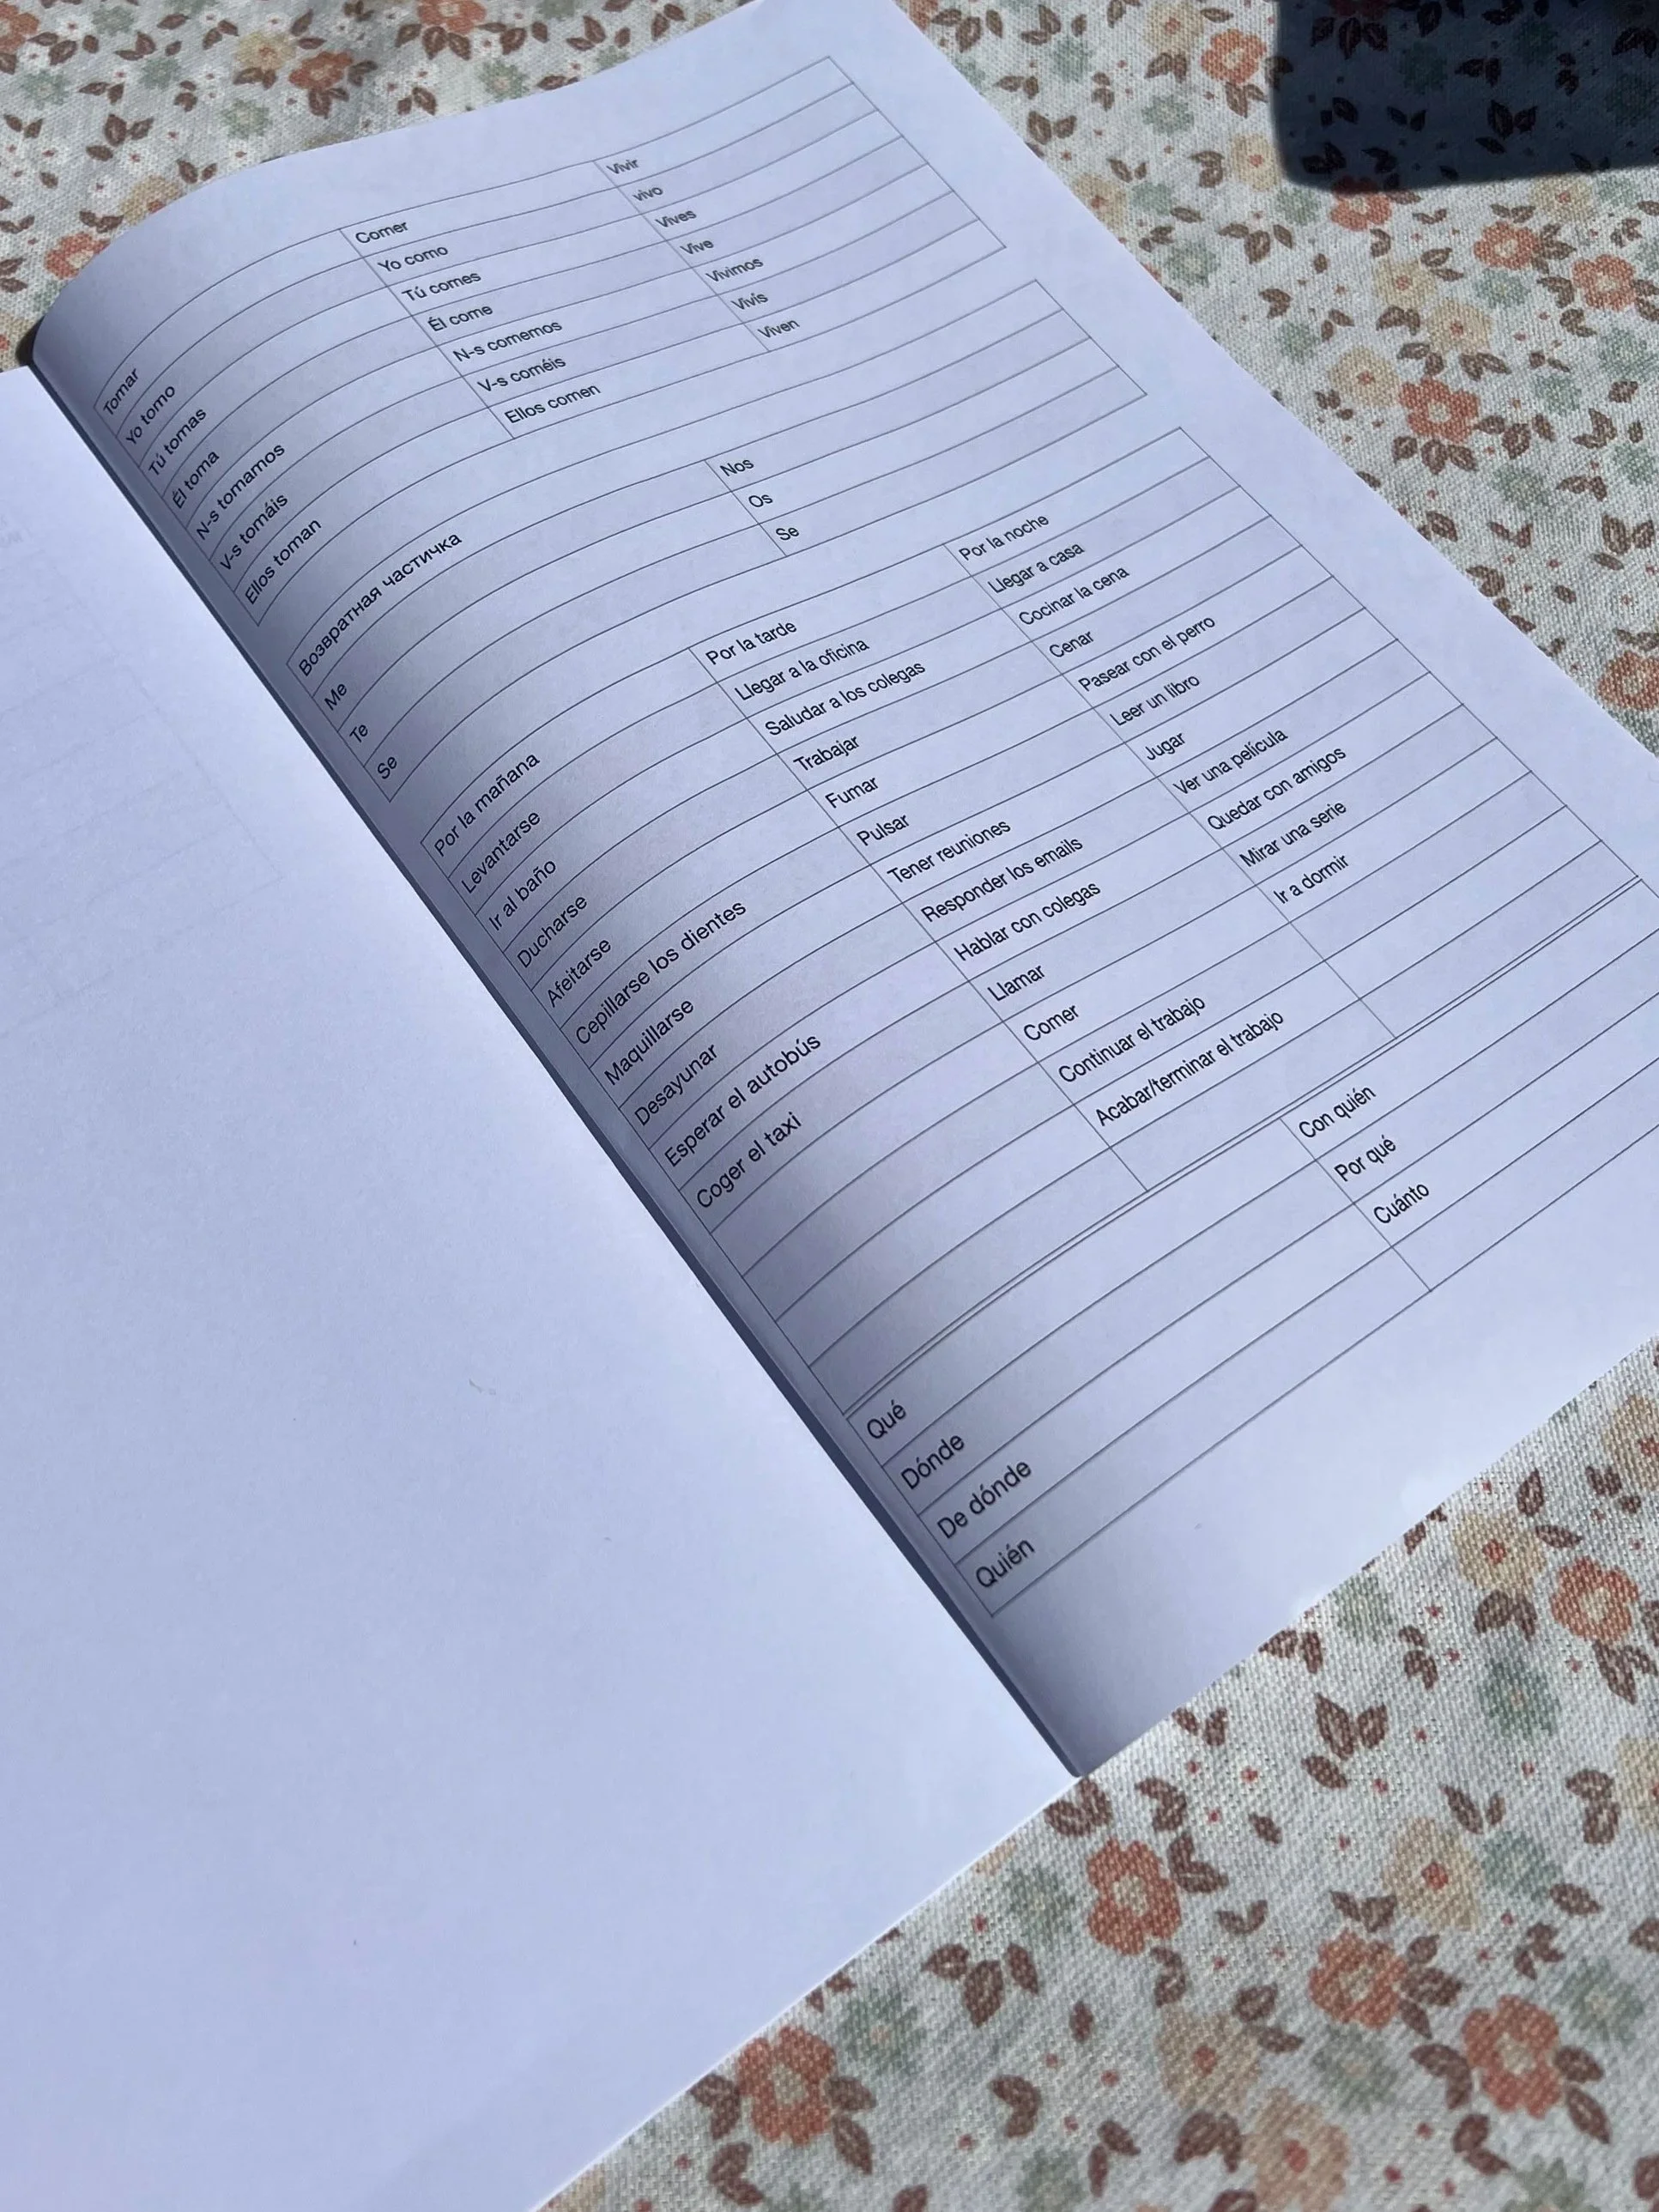 Tomar Comer Vivir
Yo tomo Yo como vivo
Tú tomas Tú comes Vives
Él toma Él come Vive
N-s tomamos N-s comemos Vivimos
V-s tomáis V-s coméis Vivís
Ellos toman Ellos comen Viven
Возвратная частичка
Me Nos
Te Os
Se Se
Por la mañana Por la tarde Por la noche
Levantarse Llegar a la oficina Llegar a casa
Ir al baño Saludar a los colegas Cocinar la cena
Ducharse Trabajar Cenar
Afeitarse Fumar Pasear con el perro
Cepillarse los dientes Pulsar Leer un libro
Maquillarse Tener reuniones Jugar
Desayunar Responder los emails Ver una película
Esperar el autobús Hablar con colegas Quedar con amigos
Coger el taxi Llamar Mirar una serie
Comer Ir a dormir
Continuar el trabajo
Acabar/terminar el trabajo
Qué Con quién
Dónde Por qué
De dónde Cuánto
Quién